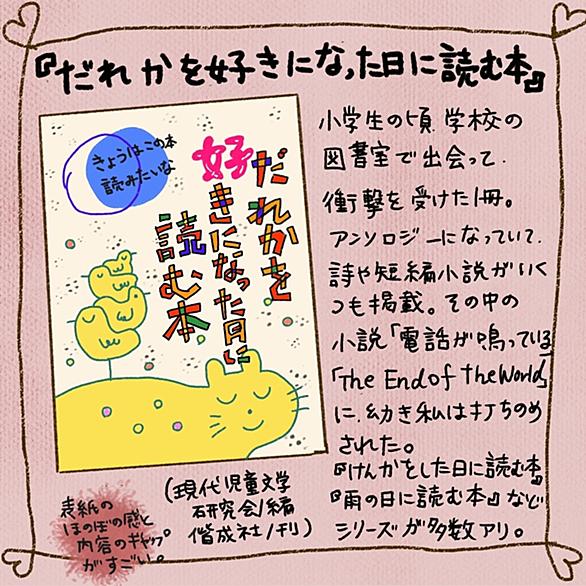 『だれかを好きになった日に読む本』
きょうはこの本
読みたいな
だれかを
好きになった日に
読む本
小学生の頃 学校の
図書室で出会って.
衝撃を受けた1冊。
アンソロジーになっていて.
詩や短編小説がいく
つも掲載。その中の
小説「電話が鳴っている」
「The End of the World」
に、幼き私は打ちのめ
された。
『けんかをした日に読む本』
『雨の日に読む本』など
シリーズが多数アリ。
(現代児童文学
研究会/編
偕成社/刊)
表紙の
ほのぼの感と
内容のギャップ
がすごい。